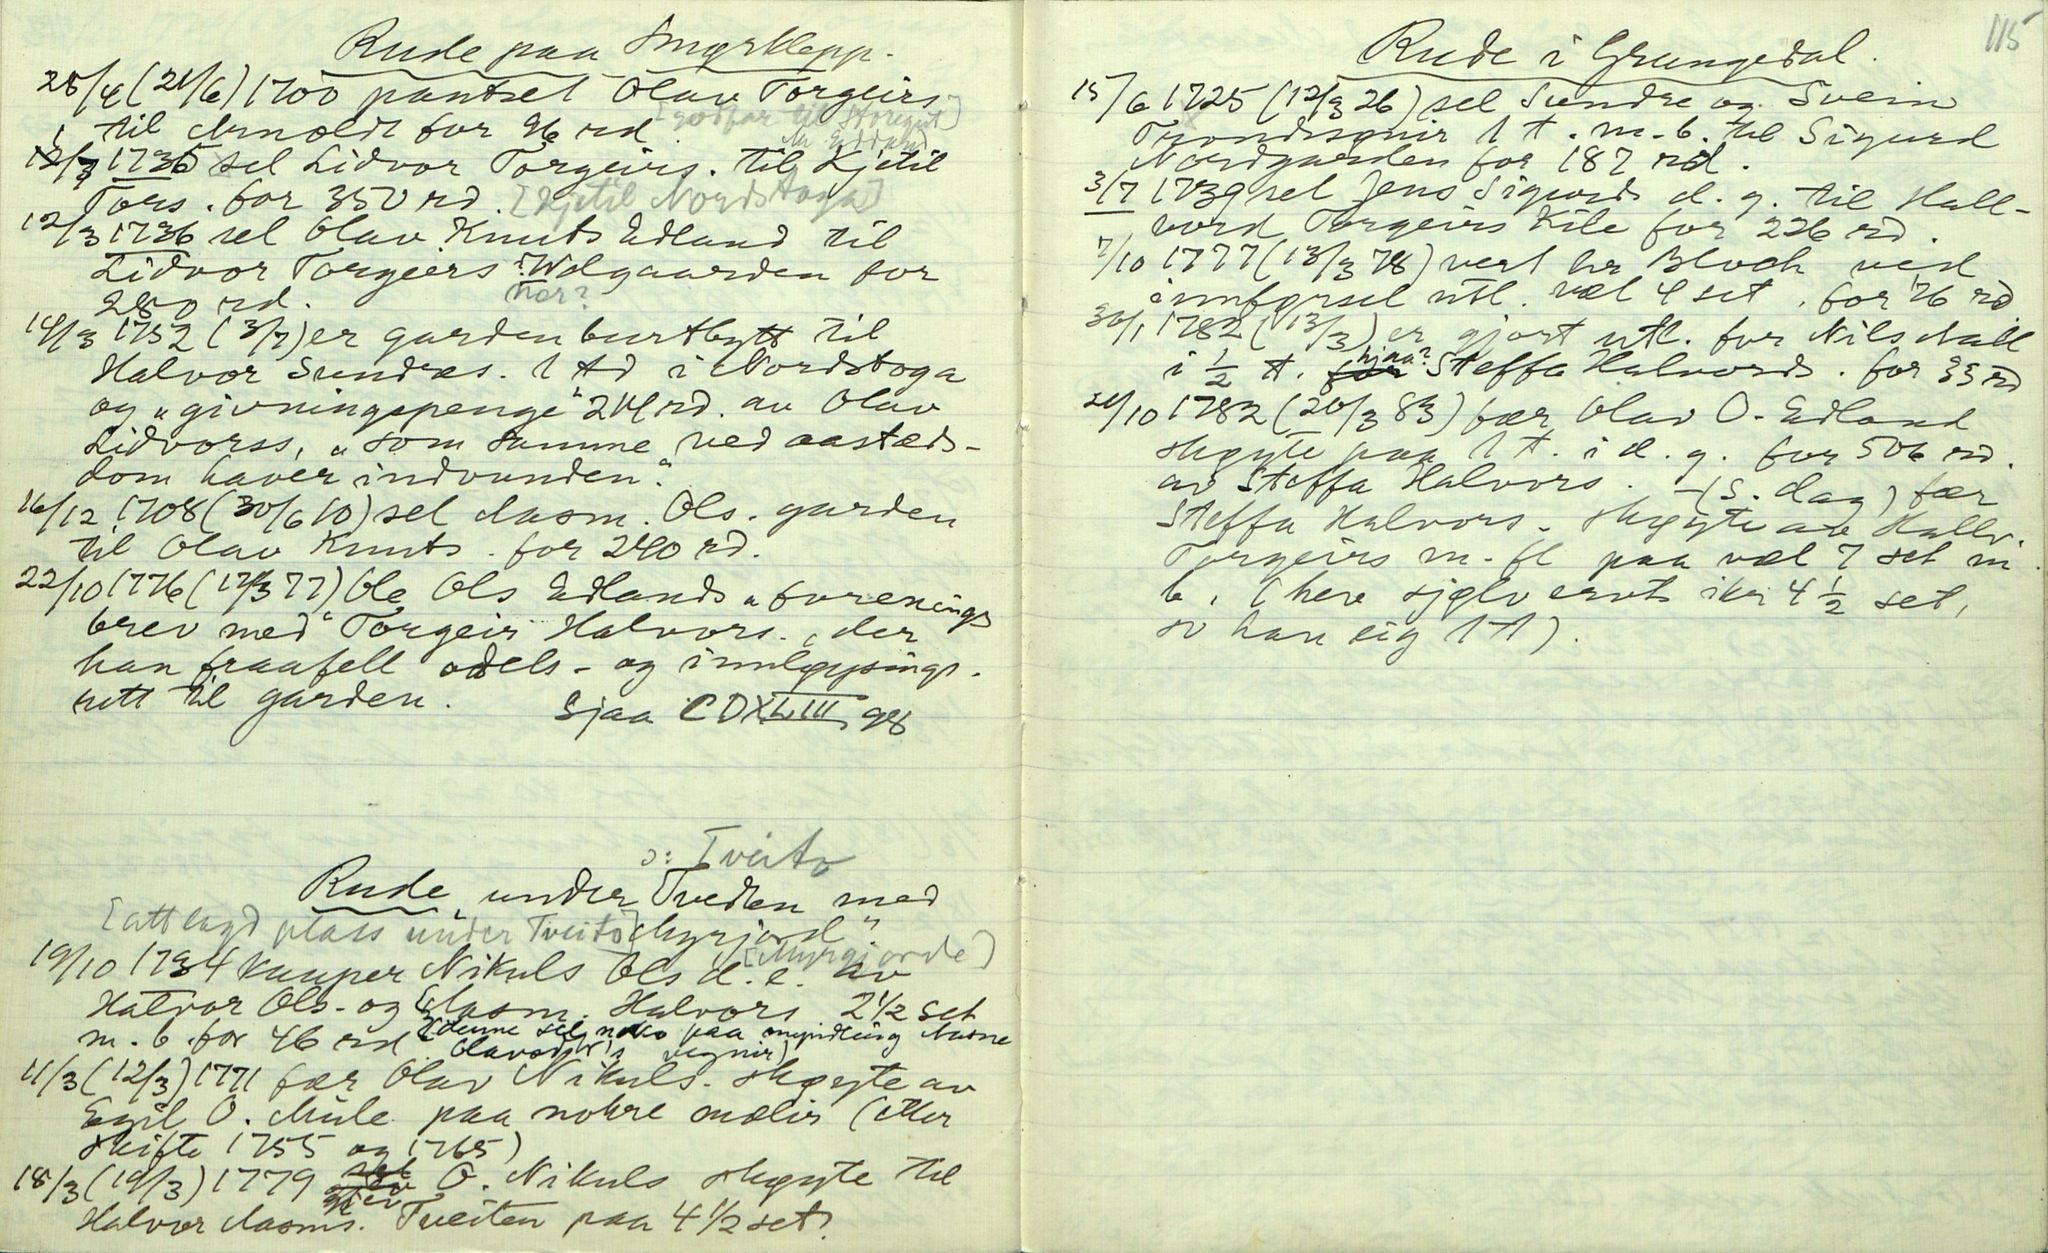 Rude paa Smørklepp.
28/4 (21/6) 1700 pantset Olav Torgeirs
[godfar til Storegut]
til Arnoldt for 96 rd.
12/3 1736 sel Lidvor Torgeirs. til Kjetil
Tors. for 350 rd. [Kjetil Nordstoga]
12/3 1736 sel Olav Knuts Edland til
Lidvor Torgeirs i Wdgaarden for
280 rd.
nær?
14/3 1752 (3/7) er garden burtbytt til
Halvor Sundres. 1 td i Nordstoga
og „givningspenge“ 204 rd. av Olav
Lidvorss, „som samme ved aastæds-
dom haver indvunden“.
16/12 1708 (30/6 10) sel Aasm. Ols. garden
til Olav Knuts. for 240 rd.
22/10 1776 (17/3 77) Ole Ols Edlands „forenings
brev med“ Torgeir Halvors., der
han fraafell odels- og innløysings-
rett til garden. Sjaa CDXLIII 98
ɔ: Tveito
Rude „under Tveden med
[attlagd plass under Tveito] Myrjord“.
[Myrgjorde]
19/10 1734 kauper Nikuls Ols d. e. av
Halvor Ols. og Aasm. Halvors 2 1/2 set
m. b. for 46 rd (denne sel noko paa myndling Aasne
Olavsdtr's vegnir)
11/3 (12/3) 1771 fær Olav Nikuls. skøyte av
Egil O. Mule paa nokre mælir (etter
skifte 1755 og 1765)
18/3 (19/3) 1779 gjev O. Nikuls skøyte til
Halvor Aasms. Tveiten paa 4 1/2 set.
115
Rude i Grungedal.
15/6 1725 (12/3 26) sel Sundre og Svein
Trondssønir 1 t. m. b. til Sigurd
Nordgarden for 187 rd.
3/7 1739 sel Jens Sigurds d. g. til Hall-
vord Torgeirs Kile for 226 rd.
7/10 1777 (13/3 78) vert hr Bloch ved
innførsel utl. væl 4 set. for 76 rd
30/1 1782 (13/3) er gjort utl. for Nils Aall
i 1/2 t. for hjaa? Steffa Halvords. for 33 rd
21/10 1782 (20/3 83) fær Olav O. Edland
skøyte paa 1 t. i d. g. for 506 rd.
av Steffa Halvors. – (s. dag) fær
Steffa Halvors. skøyte av Hallv.
Torgeirs m. fl paa væl 7 set m.
b. (here sjølv ervt ikr 4 1/2 set,
so han eig 1 t).